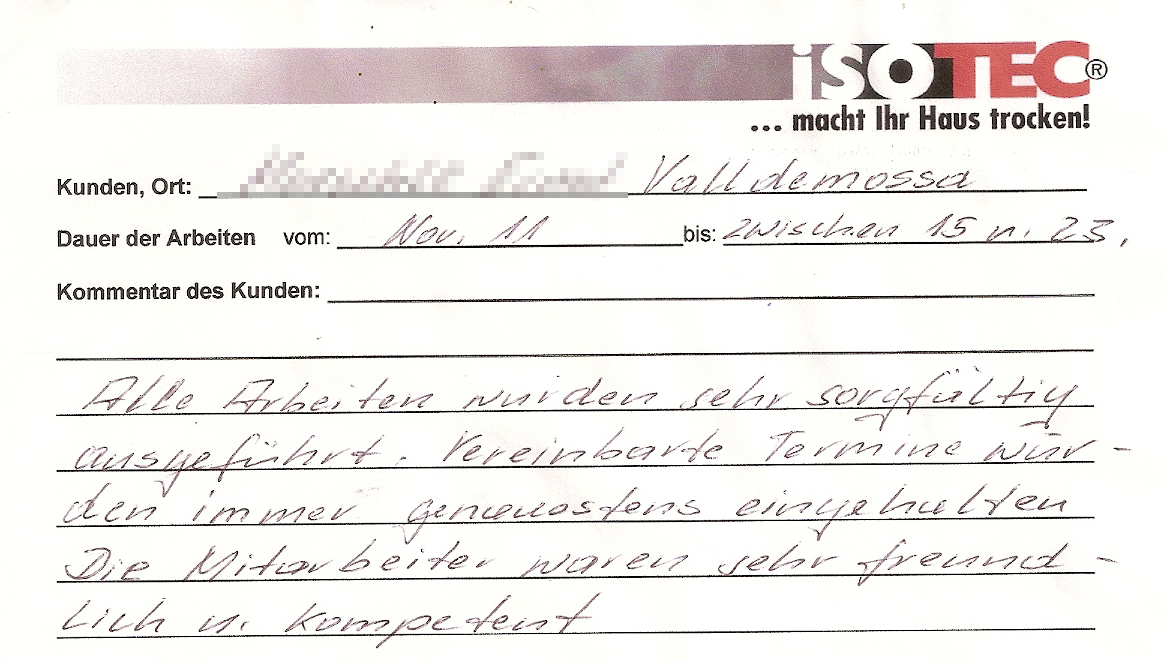 iSOTEC®
... macht Ihr Haus trocken!
Kunden, Ort: Valldemossa
Dauer der Arbeiten vom: Nov. 11 bis: zwischen 15 u. 23.
Kommentar des Kunden:
Alle Arbeiten wurden sehr sorgfältig
ausgeführt. Vereinbarte Termine wur-
den immer genauestens eingehalten
Die Mitarbeiter waren sehr freund-
lich u. kompetent